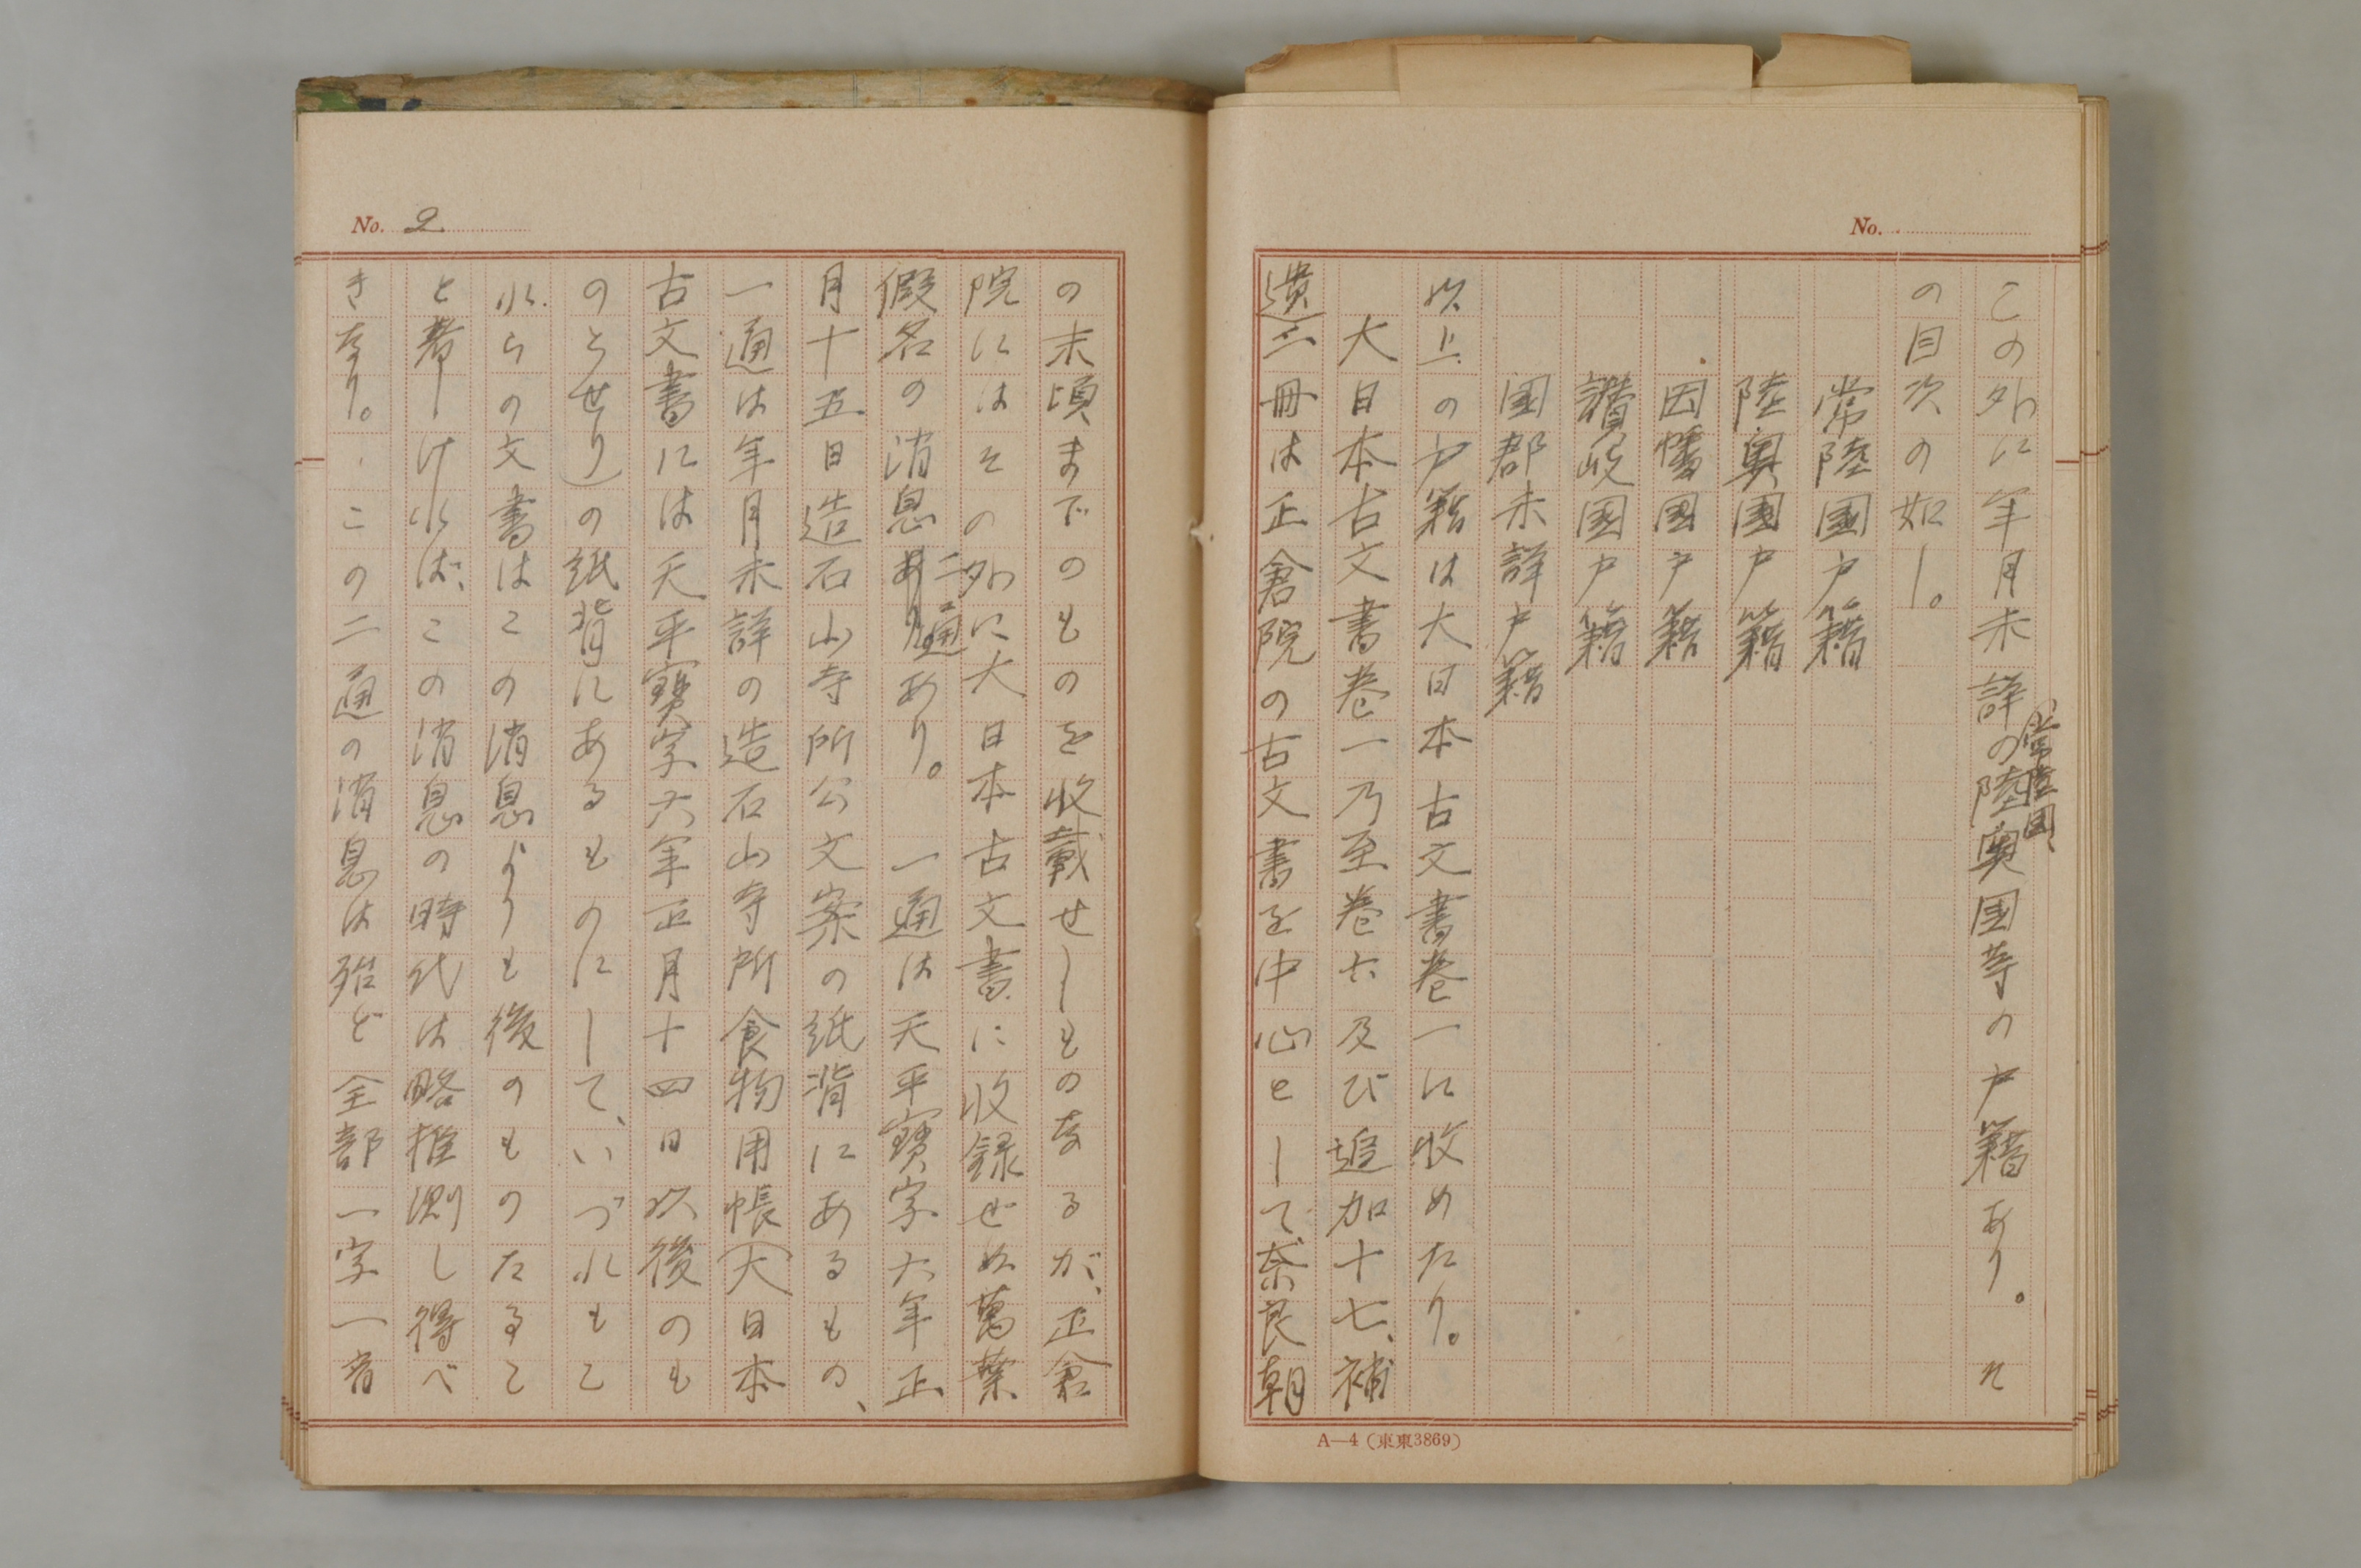 No.
この外に年月未詳の常陸国、陸奥国等の戸籍あり。そ
の目次の如し。
常陸國戸籍
陸奥國戸籍
因幡國戸籍
讃岐國戸籍
國郡未詳戸籍
以上の戸籍は大日本古文書巻一に收めたり。
大日本古文書巻一乃至巻六及び追加十七、補
遺二冊は正倉院の古文書を中心として奈良朝
A—4(東東3869)
No. 2
の末頃までのものを收載せしものなるが、正倉
院にはその外に大日本古文書に收録せぬ萬葉
假名の消息二通あり。一通は天平寶字六年正
月十五日造石山寺所公文案の紙背にあるもの、
一通は年月未詳の造石山寺所食物用帳(大日本
古文書には天平寶字六年正月十四日以後のも
のとせり)の紙背にあるものにして、いづれもこ
れらの文書はこの消息よりも後のものたるこ
と著しければ、この消息の時代は略推測し得べ
きなり。この二通の消息は殆ど全部一字一音